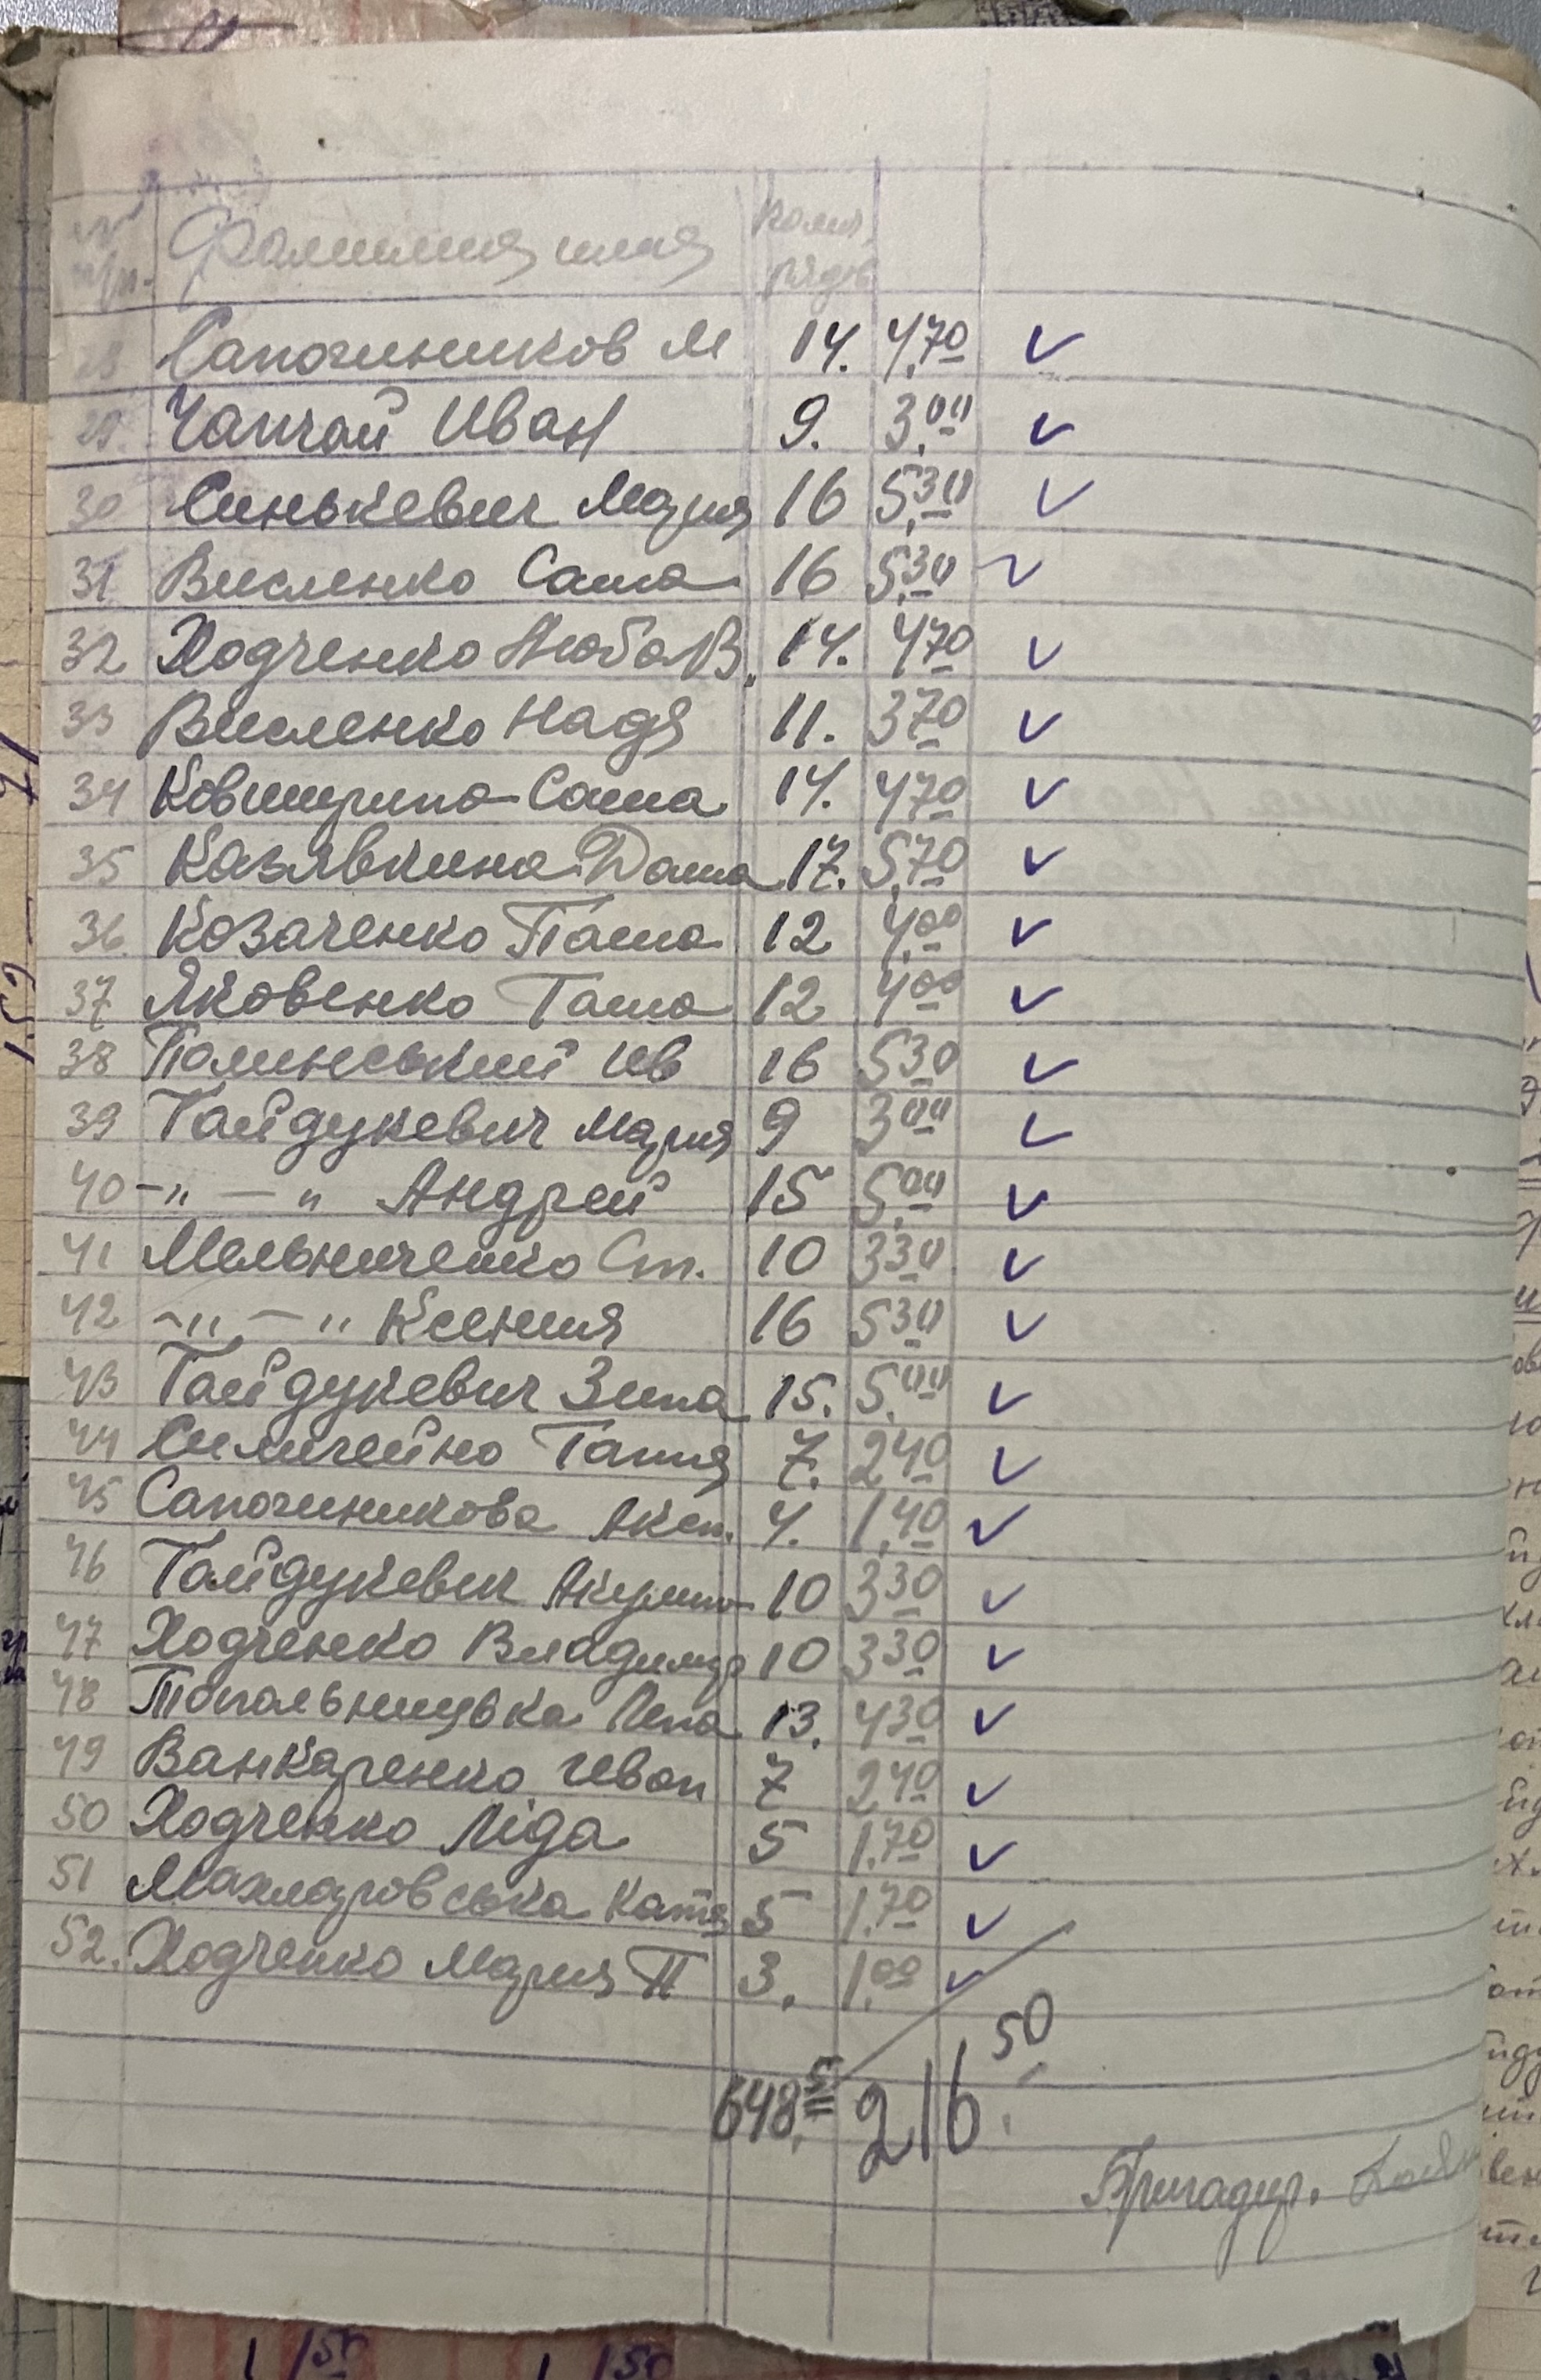 № Фамилия, имя Колич.
п/п. рядов
28 Сапожников М 14. 4,70 ✓
29. Чапчай Иван 9. 3,00 ✓
30 Синькевич Мария 16 5,30 ✓
31 Висленко Саша 16 5,30 ✓
32 Ходченко Люба В. 14. 4 70 ✓
33 Висленко Надя 11. 3 70 ✓
34 Саша 14. 4 70 ✓
35 Казявкина Даша 17. 5,70 ✓
36. Козаченко Паша 12 4,00 ✓
37 Яковенко Таша 12 4 00 ✓
38 Полинський Ив 16 5 30 ✓
39 Гайдукевич Мария 9 3 00 ✓
40 -"- " Андрей 15 5,00 ✓
41 Мельниченко Ст. 10 3 30 ✓
42 -"- " Ксения 16 5 30 ✓
43 Гайдукевич Зина 15. 5,00 ✓
44 Тання 7. 2 40 ✓
45 Сапожникова Аксн. 4. 1,40 ✓
46 Гайдукевич Акулина 10 3 30 ✓
47 Ходченко Владимир 10 3 30 ✓
48 Топольницька Лена 13. 4 30 ✓
49 Ванкаренко Иван 7 2 40 ✓
50 Ходченко Ліда 5 1.70 ✓
51 Катя 5 1.70 ✓
52. Ходченко Мария П 3. 1.00 ✓
648,5 216 50
Бригадир.